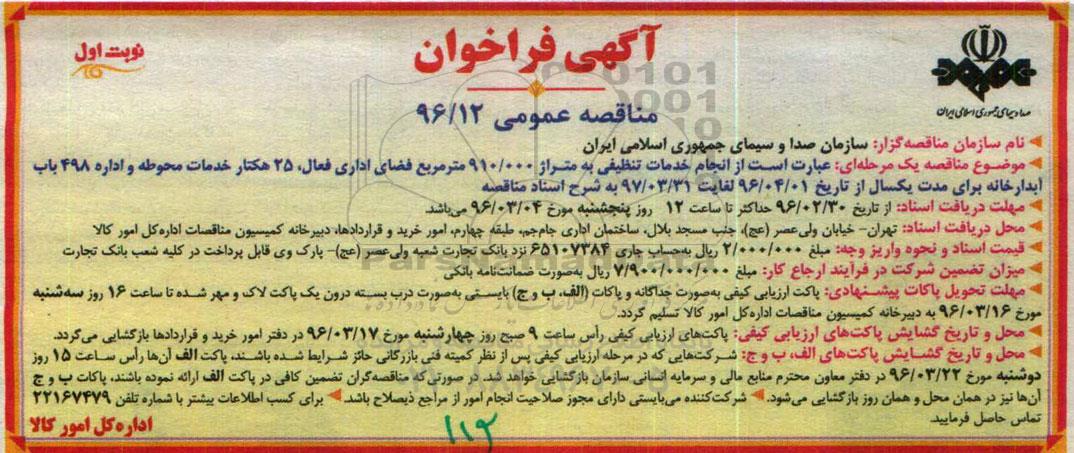 آگهی فراخوان
نوبت اول
صدا و سیمای جمهوری اسلامی ایران
مناقصه عمومی ۹۶/۱۲
نام سازمان مناقصه‌گزار: سازمان صدا و سیمای جمهوری اسلامی ایران
موضوع مناقصه یک مرحله‌ای: عبارت است از انجام خدمات تنظیفی به متراژ ۹۱۰/۰۰۰ مترمربع فضای اداری فعال، ۲۵ هکتار خدمات محوطه و اداره ۴۹۸ باب
آبدارخانه برای مدت یکسال از تاریخ ۹۶/۰۴/۰۱ لغایت ۹۷/۰۳/۳۱ به شرح اسناد مناقصه
مهلت دریافت اسناد: از تاریخ ۹۶/۰۲/۳۰ حداکثر تا ساعت ۱۲ روز پنجشنبه مورخ ۹۶/۰۳/۰۴ می‌باشد.
محل دریافت اسناد: تهران- خیابان ولی‌عصر (عج)، جنب مسجد بلال، ساختمان اداری جام‌جم، طبقه چهارم، امور خرید و قراردادها، دبیرخانه کمیسیون مناقصات اداره‌کل امور کالا
قیمت اسناد و نحوه واریز وجه: مبلغ ۲/۰۰۰/۰۰۰ ریال به‌حساب جاری ۶۵۱۰۷۳۸۴ نزد بانک تجارت شعبه ولی‌عصر (عج)- پارک وی قابل پرداخت در کلیه شعب بانک تجارت
میزان تضمین شرکت در فرآیند ارجاع کار: مبلغ ۷/۹۰۰/۰۰۰/۰۰۰ ریال به‌صورت ضمانت‌نامه بانکی
مهلت تحویل پاکات پیشنهادی: پاکت ارزیابی کیفی به‌صورت جداگانه و پاکات (الف، ب و ج) بایستی به‌صورت درب بسته درون یک پاکت لاک و مهر شده تا ساعت ۱۶ روز سه‌شنبه
مورخ ۹۶/۰۳/۱۶ به دبیرخانه کمیسیون مناقصات اداره‌کل امور کالا تسلیم گردد.
محل و تاریخ گشایش پاکت‌های ارزیابی کیفی: پاکت‌های ارزیابی کیفی رأس ساعت ۹ صبح روز چهارشنبه مورخ ۹۶/۰۳/۱۷ در دفتر امور خرید و قراردادها بازگشایی می‌گردد.
محل و تاریخ گشایش پاکت‌های الف، ب و ج: شرکت‌هایی که در مرحله ارزیابی کیفی پس از نظر کمیته فنی بازرگانی حائز شرایط شده باشند، پاکت الف آن‌ها رأس ساعت ۱۵ روز
دوشنبه مورخ ۹۶/۰۳/۲۲ در دفتر معاون محترم منابع مالی و سرمایه انسانی سازمان بازگشایی خواهد شد. در صورتی که مناقصه‌گران تضمین کافی در پاکت الف ارائه نموده باشند، پاکات ب و ج
آن‌ها نیز در همان محل و همان روز بازگشایی می‌شود. شرکت‌کننده می‌بایستی دارای مجوز صلاحیت انجام امور از مراجع ذیصلاح باشد. برای کسب اطلاعات بیشتر با شماره تلفن ۲۲۱۶۷۴۷۹
تماس حاصل فرمایید.
اداره‌کل امور کالا